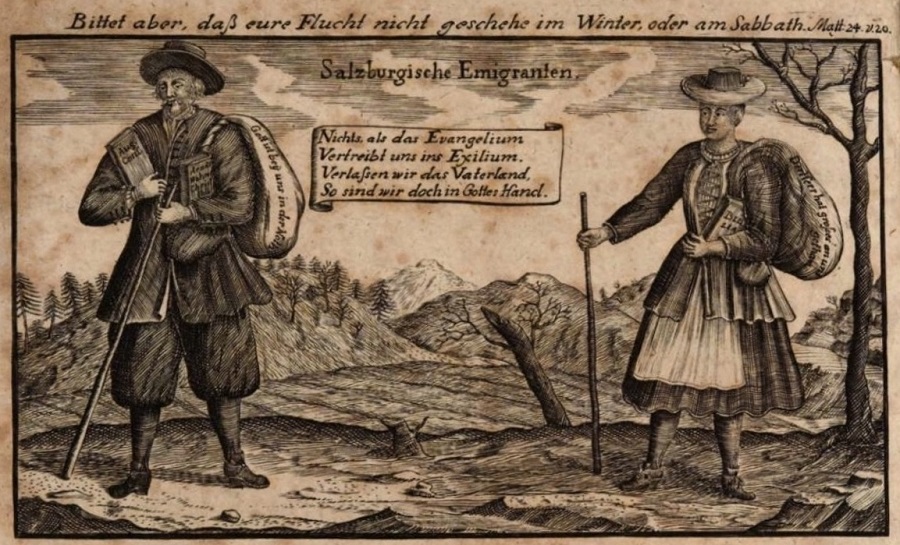 Bittet aber, daß eure Flucht nicht geschehe im Winter, oder am Sabbath. Matt. 24. v. 20.
Salzburgische Emigranten.
Nichts, als das Evangelium
Vertreibt uns ins Exilium.
Verlaßen wir das Vaterland,
So sind wir doch in Gottes Hand.
Aug.
Conf.
uns in der